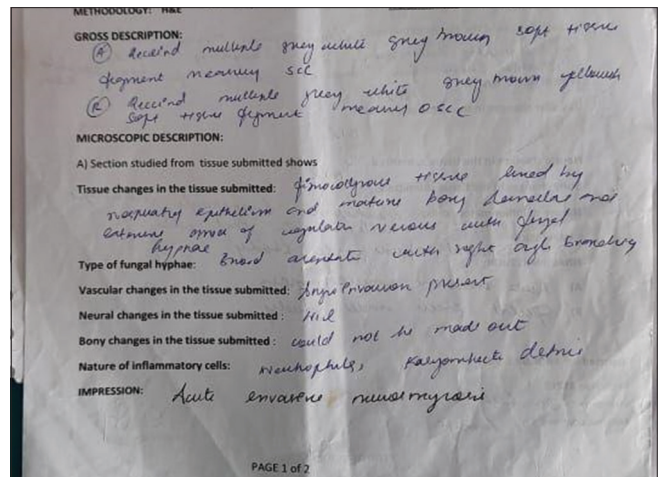 METHODOLOGY: H&E
GROSS DESCRIPTION:
(A) Received multiple grey white grey brown soft tissue
fragment measuring 5cc
(B) Received multiple grey white grey brown yellowish
soft tissue fragment measuring 0.5cc
MICROSCOPIC DESCRIPTION:
A) Section studied from tissue submitted shows
Tissue changes in the tissue submitted: fibrocollagenous tissue lined by
respiratory epithelium and mature bony lamellae and
extensive areas of coagulative necrosis with fungal
hyphae
Type of fungal hyphae: Broad aseptate with right angle branching
Vascular changes in the tissue submitted: Angioinvasion present
Neural changes in the tissue submitted : Nil
Bony changes in the tissue submitted : could not be made out
Nature of inflammatory cells: Neutrophils, karyorrhectic debris
IMPRESSION: Acute invasive mucormycosis
PAGE 1 of 2